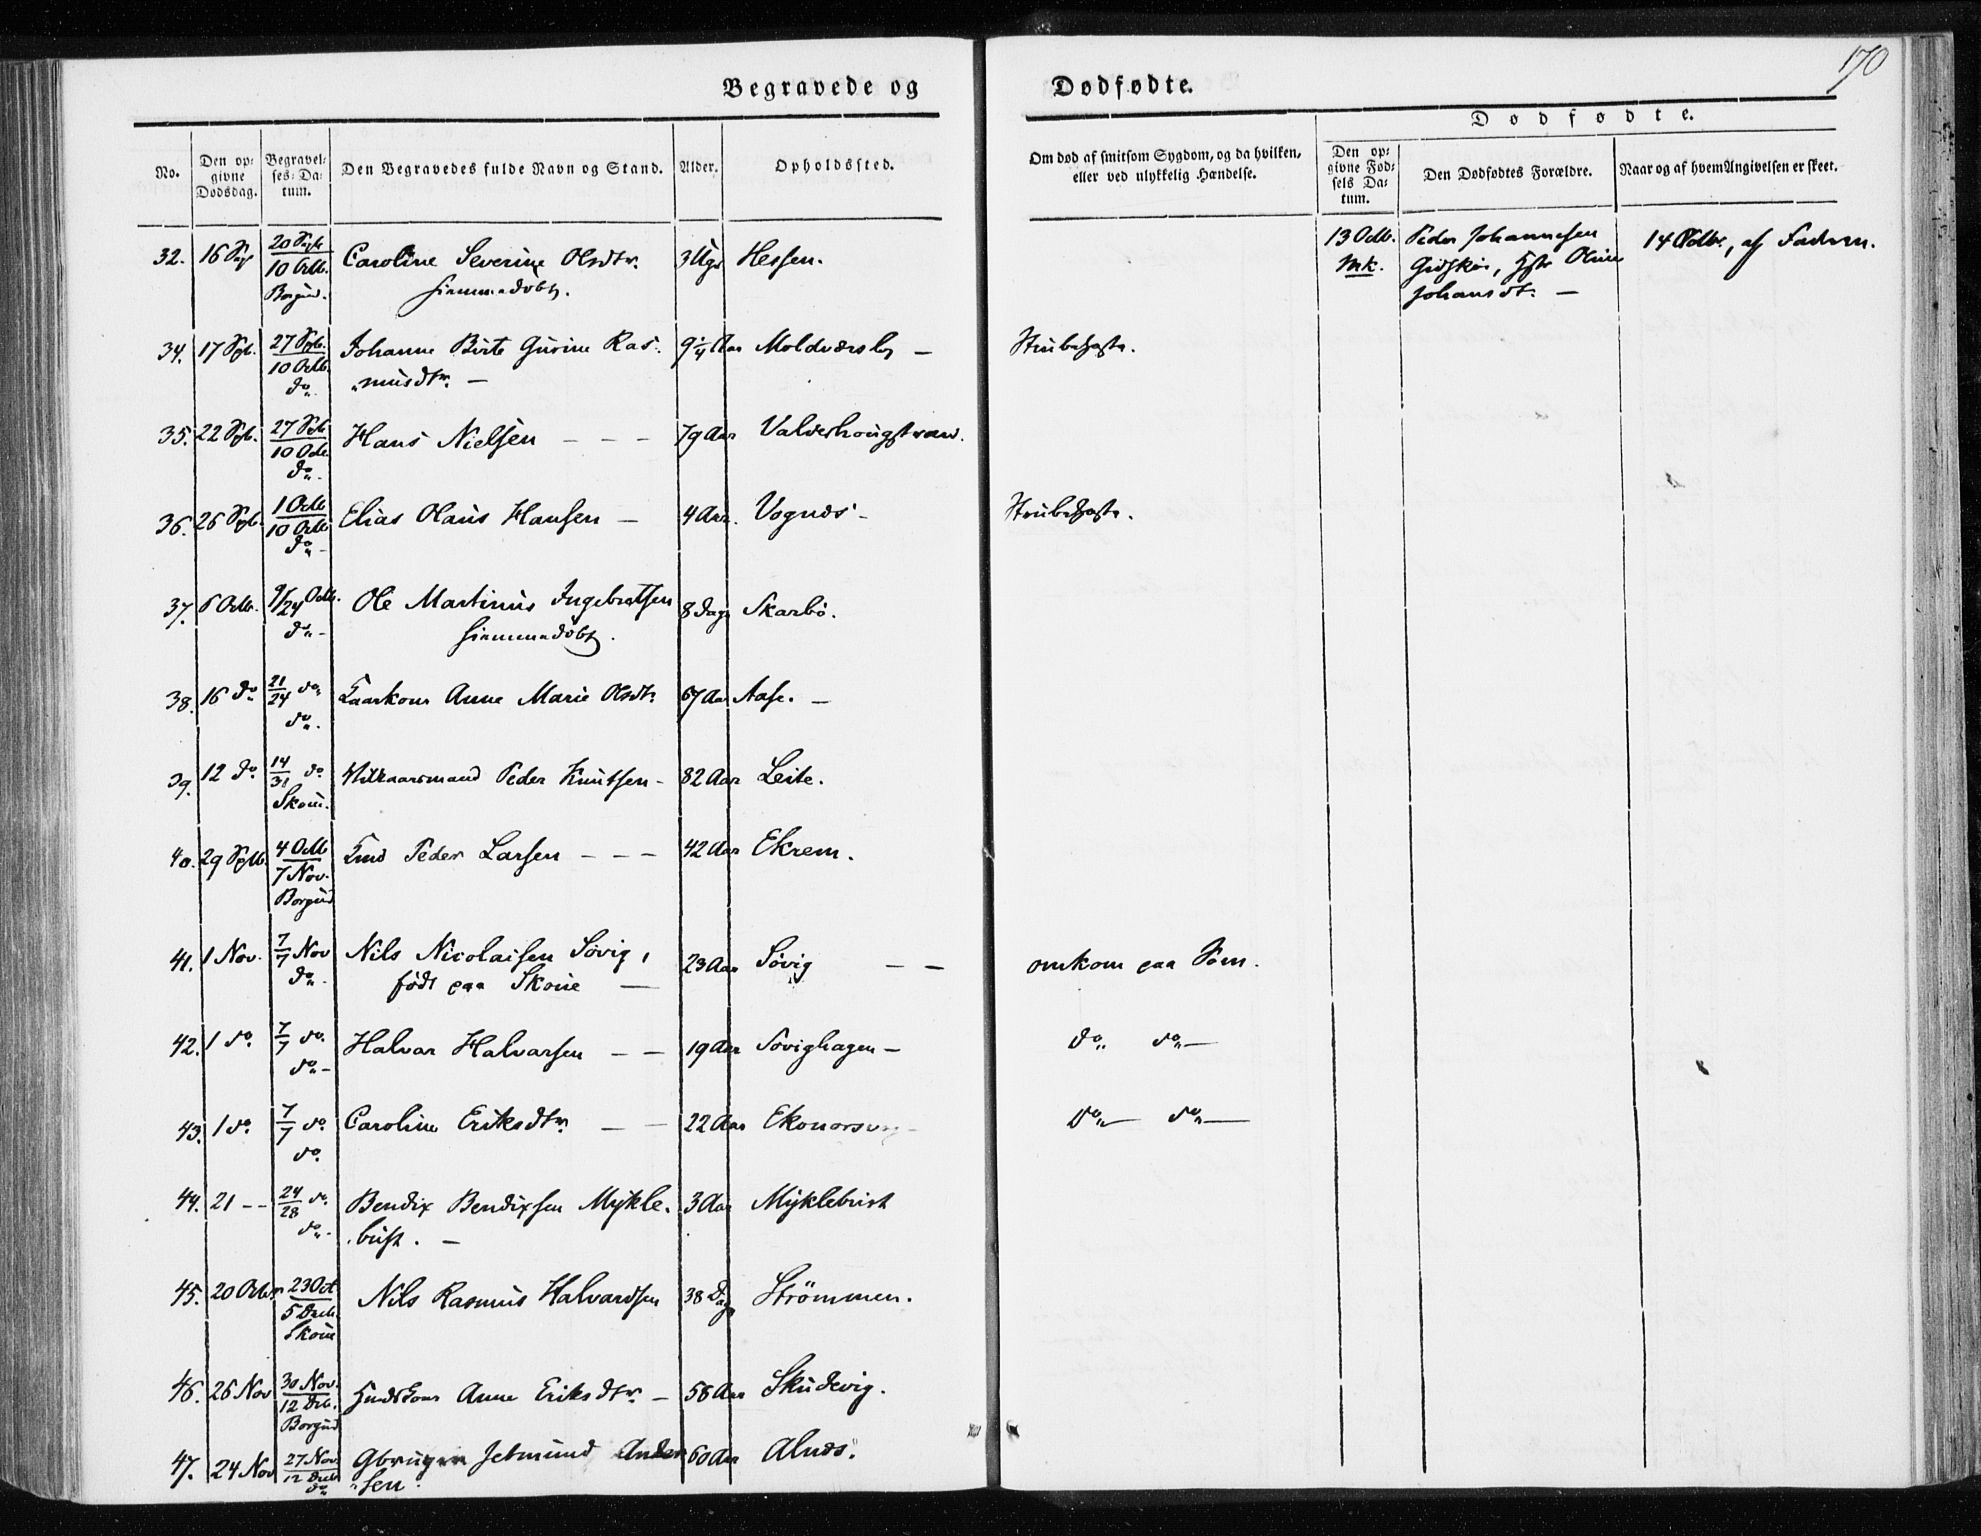 170
Begravede og Dødfødte.
Dødfødte.
No.
Den op-
givne
Dødsdag.
Begravel-
ses-Da-
tum.
Den Begravedes fulde Navn og Stand.
Alder.
Opholdssted.
Om død af smitsom Sygdom, og da hvilken,
eller ved ulykkelig Hændelse.
Den op-
givne Fød-
sels Da-
tum.
Den Dødfødtes Forældre.
Naar og af hvem Angivelsen er skeet.
32. 16 20 10 Octb. Caroline Severine Olsdtr. 3 Ugr Hessen. 13 Octb. Peder Johannesen 14 Octbr., af Faderen.
Borgund. hiemmedøbt. Mk. Giskøe, Oline
Johansdt. —
34. 17 Sptb. 27 Sptb. Johanne Birte Gurine Ras- 9¼ Aar Moldværsby — Strubehoste.
10 Octb. musdtr. —
do.
35. 22 Sptb. 27 Sptb. Hans Nielsen — — — 79 Aar Valderhougstrand.
10 Octb.
do.
36. 26 Sptb. 1 Octb. Elias Olaus Hansen — 4 Aar. Vognæs — Strubehoste.
10 Octb.
do —
37. 6 Octb. 9/24 Octb. Ole Martinus Ingebretsen 8 Dage Skarbö.
do — hiemmedøbt.
38. 16 do 21/24 do Kaarkone Anne Marie Olsdtr. 67 Aar Aase. —
do.
39. 12 do. 14/31 do Vilkaarsmand Peder Knutsen — 82 Aar Leite.
Skoue.
40. 29 Sptb. 4 Octb. Peder Larsen — — — 42 Aar Ekrem.
7 Nov.
Borgund
41. 1 Nov. 7/7 Nov Nils Nicolaisen Sövig, 23 Aar Sövig — — omkom paa Söen.
do. födt paa Skoue —
42. 1 do. 7/7 do. Halvar Halvarsen — — 19 Aar Sövighagen — do. do —
do —
43. 1 do. 7/7 do. Caroline Eriksdtr. — — 22 Aar do — do —
do.
44. 21 — — 24/28 do. Bendix Bendixsen Mykle- 3 Aar Myklebust
do. bust. —
45. 20 Octbr 23 Oct Nils Rasmus Halvardsen 38 Dage Strömmen.
5 Decb.
Skoue
46. 26 Nov 30 Nov. Anne Eriksdtr. — 58 Aar Skudevig.
12 Decb.
Borgund
47. 24 Nov 27 Nov. Gbruger Jetmund Ander- 60 Aar Alnæs.
12 Decb. sen
do